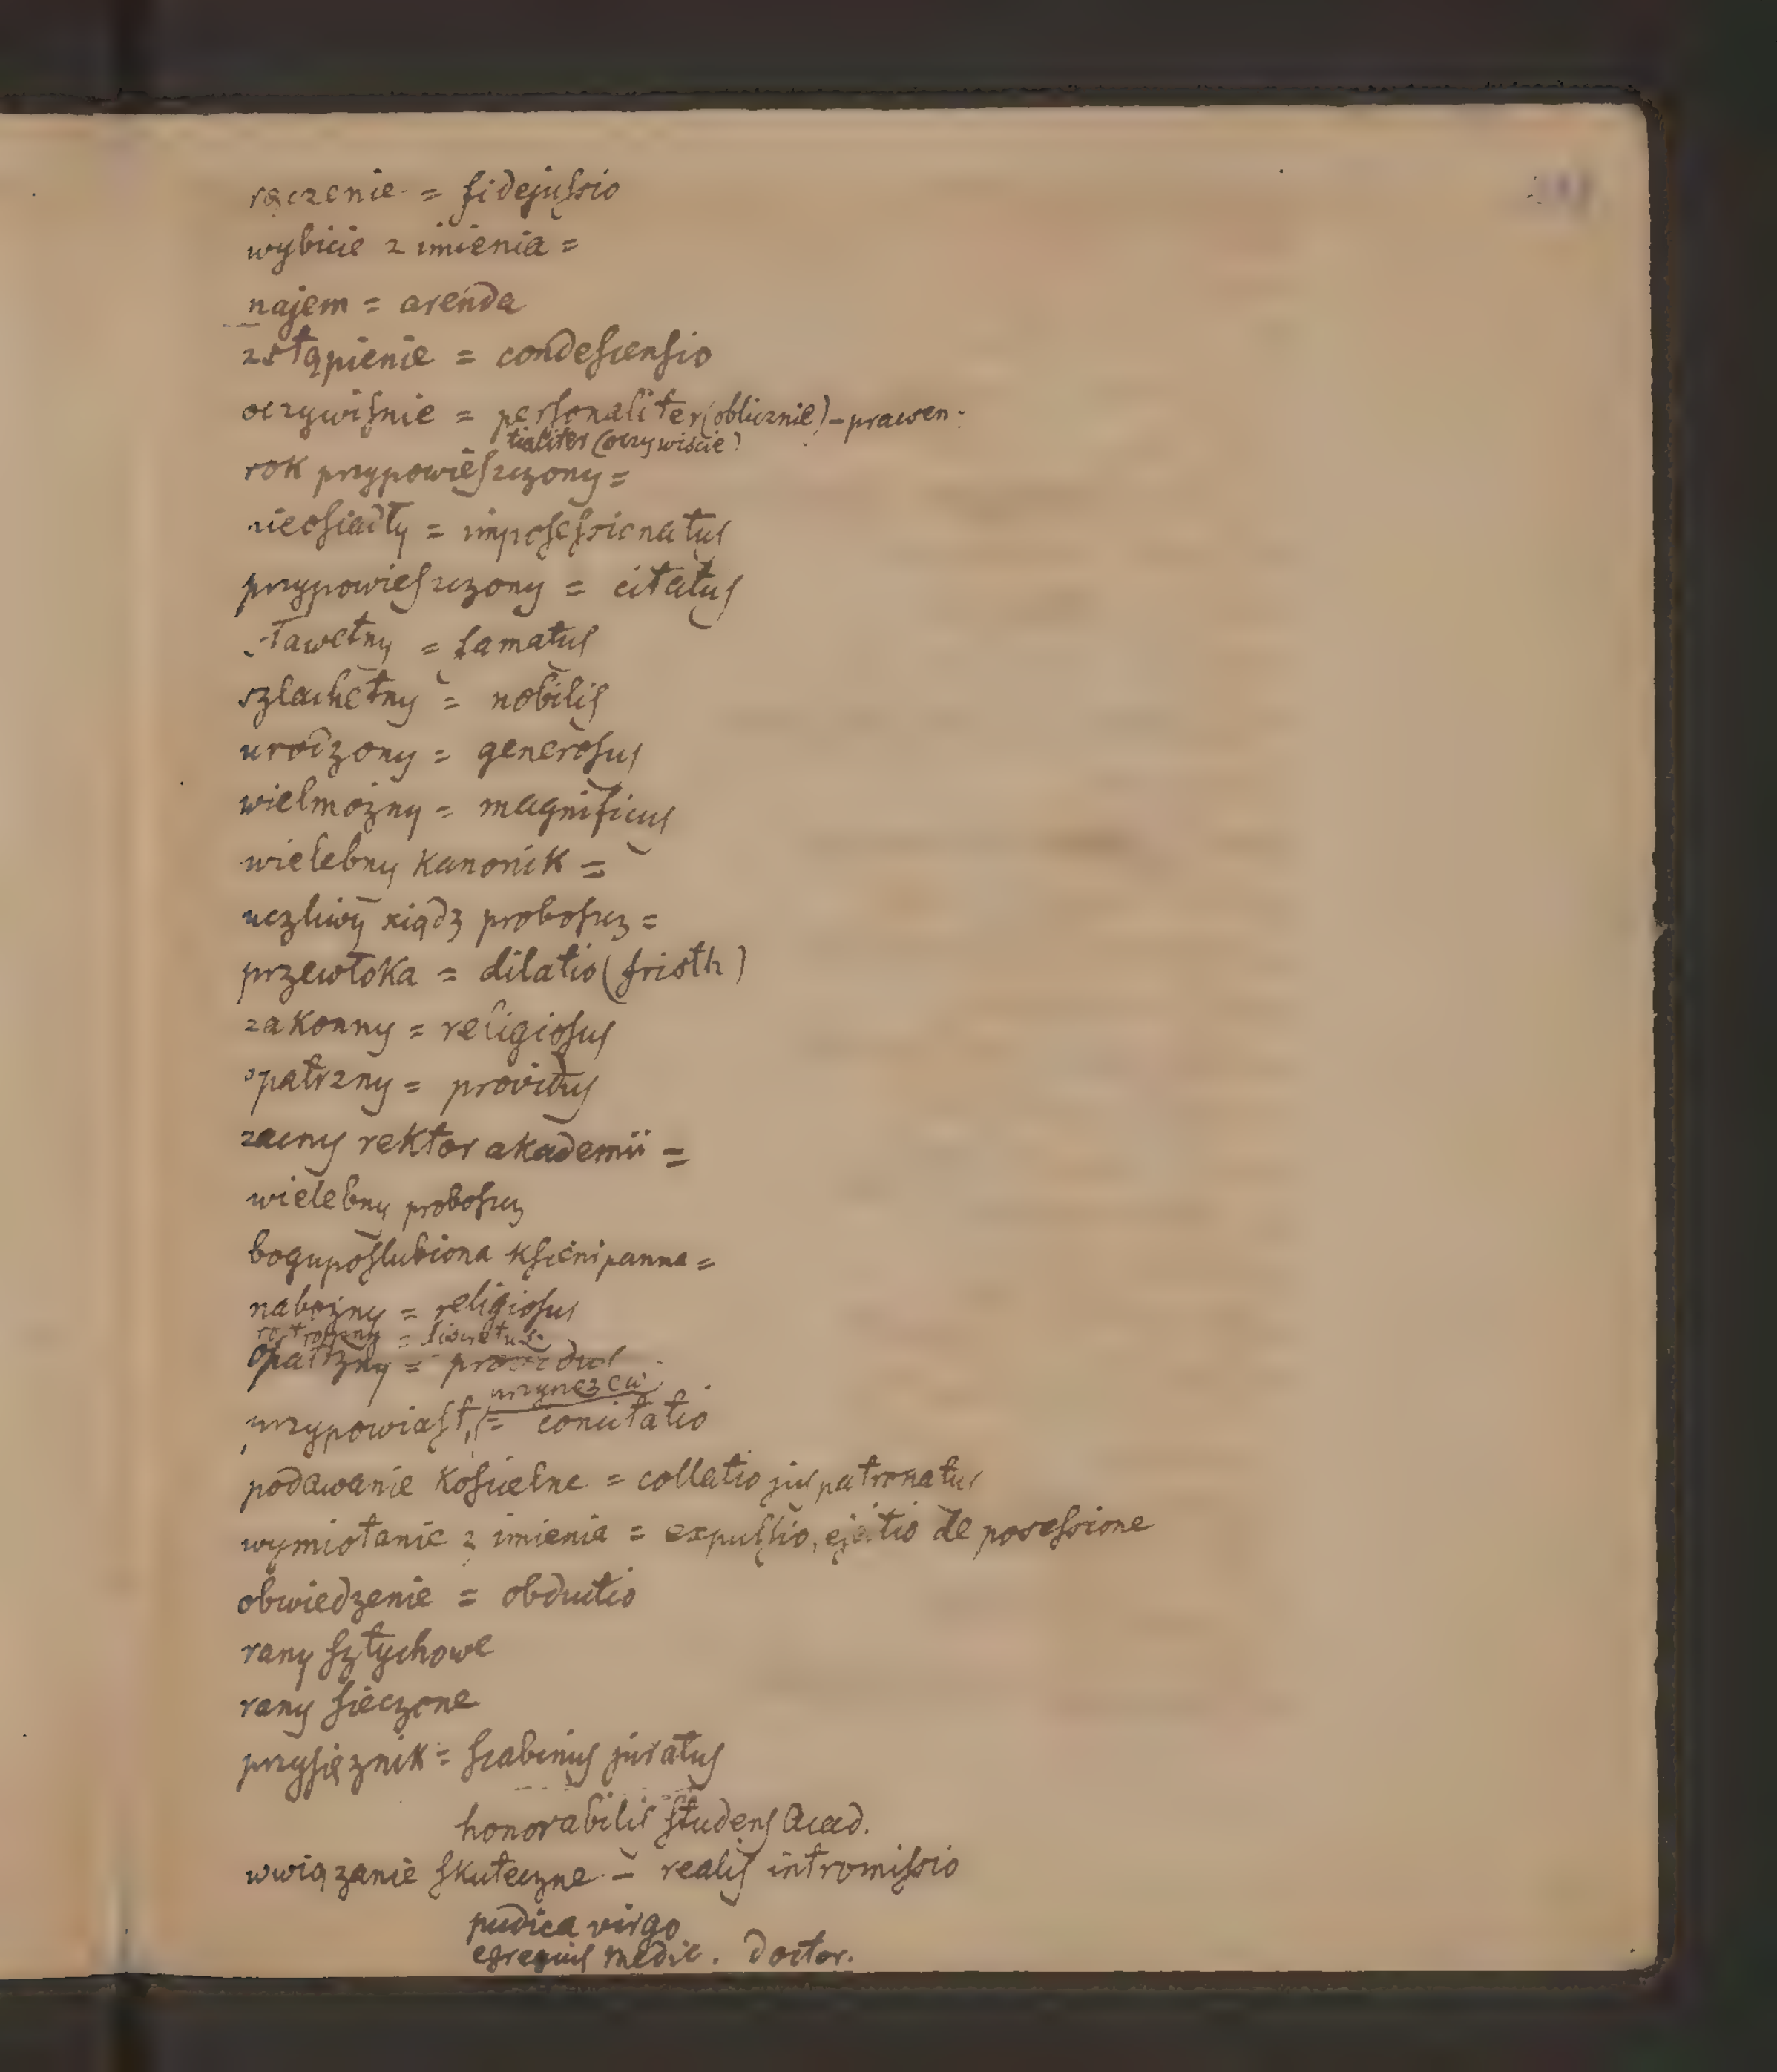 ręczenie = fidejuſsio
wybicie z imienia =
najem = arenda
zstąpienie = condeſcenſio
oczywiſnie = perſonaliter (oblicznie) – praesen-
tialiter (oczywiście)
rok przypowieſzczony =
nieoſiadły = impoſeſsionatuſ
przypowieſzczony = citatuſ
sławetny = famatuſ
szlachetny = nobiliſ
urodzony = generoſuſ
wielmożny = magnificuſ
wielebny kanonik =
uczliwy xiądz proboſzcz =
przewłoka = dilatio (fristh)
zakonny = religioſuſ
opatrzny = providuſ
zacny rektor akademii =
wielebny proboſzcz
bogupoſlubiona kſieni panna =
nabożny = religioſuſ
roztropny = discretus
opatrzny = providuſ
przypowiaſt, = concitatio
podawanie koſcielne = collatio juſ patronatuſ
wymiotanie z imienia = expulſio, ejectio de poseſsione
obwiedzenie = obductio
rany ſztychowe
rany ſieczone
przyſiężnik = ſcabinuſ juratuſ
honorabiliſ ſtudenſ Acad.
wwiązanie ſkuteczne = realiſ intromiſsio
pudica virgo
egregiuſ medic. doctor.